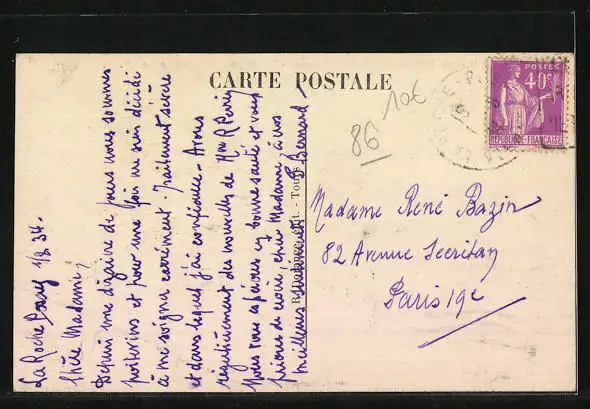 CARTE POSTALE
POSTES
40c
RÉPUBLIQUE-FRANÇAISE
10€
86
La Roche Posay 1/8 34.
Chère Madame,
Depuis une dizaine de jours nous sommes
poitevins et pour une fois me suis décidé
à me soigner carrément. Traitement sévère
et dans lequel j'ai confiance. Avons
régulièrement des nouvelles de Mme R
Nous vous espérons en bonne santé et vous
prions de croire chère Madame, à nos
meilleurs
Bernard
Madame René Bazin
82 Avenue Secrétan
Paris 19e